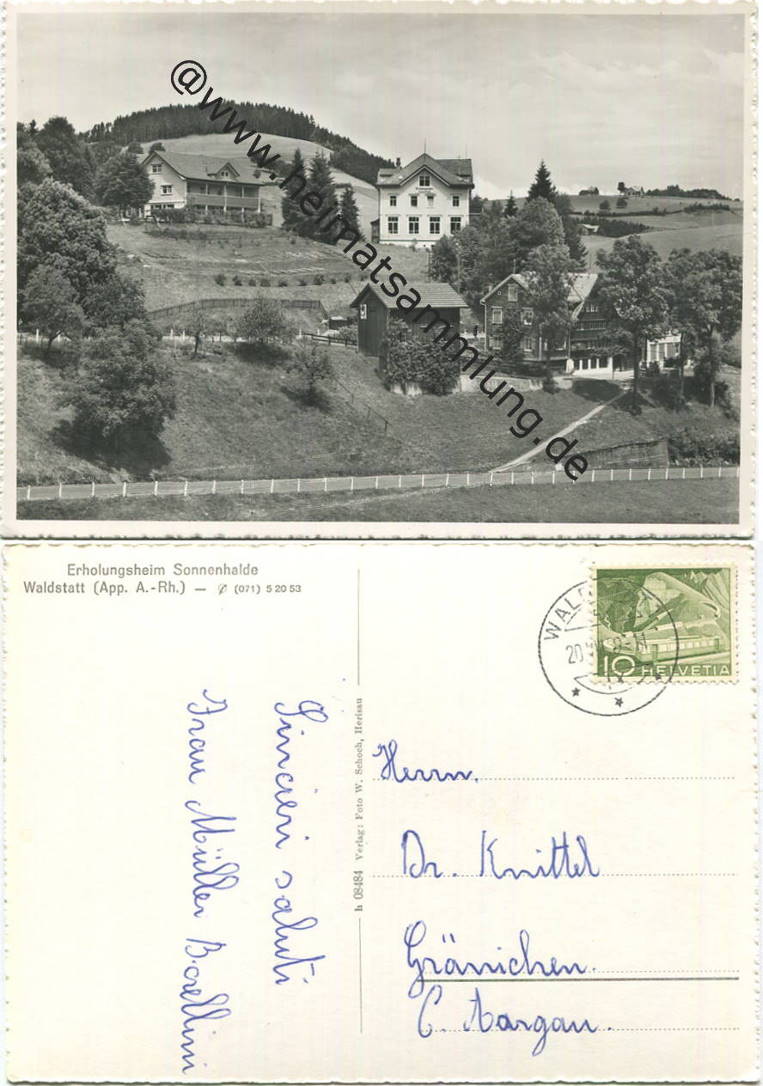 @www.heimatsammlung.de
Erholungsheim Sonnenhalde
Waldstatt (App. A.-Rh.) — (071) 5 20 53
Sincieri saluti
Frau Müller Borellini
h 08484 Verlag: Foto W. Schoch, Herisau
10 HELVETIA
Herrn.
Dr. Knittel
Gränichen.
C. Aargau.